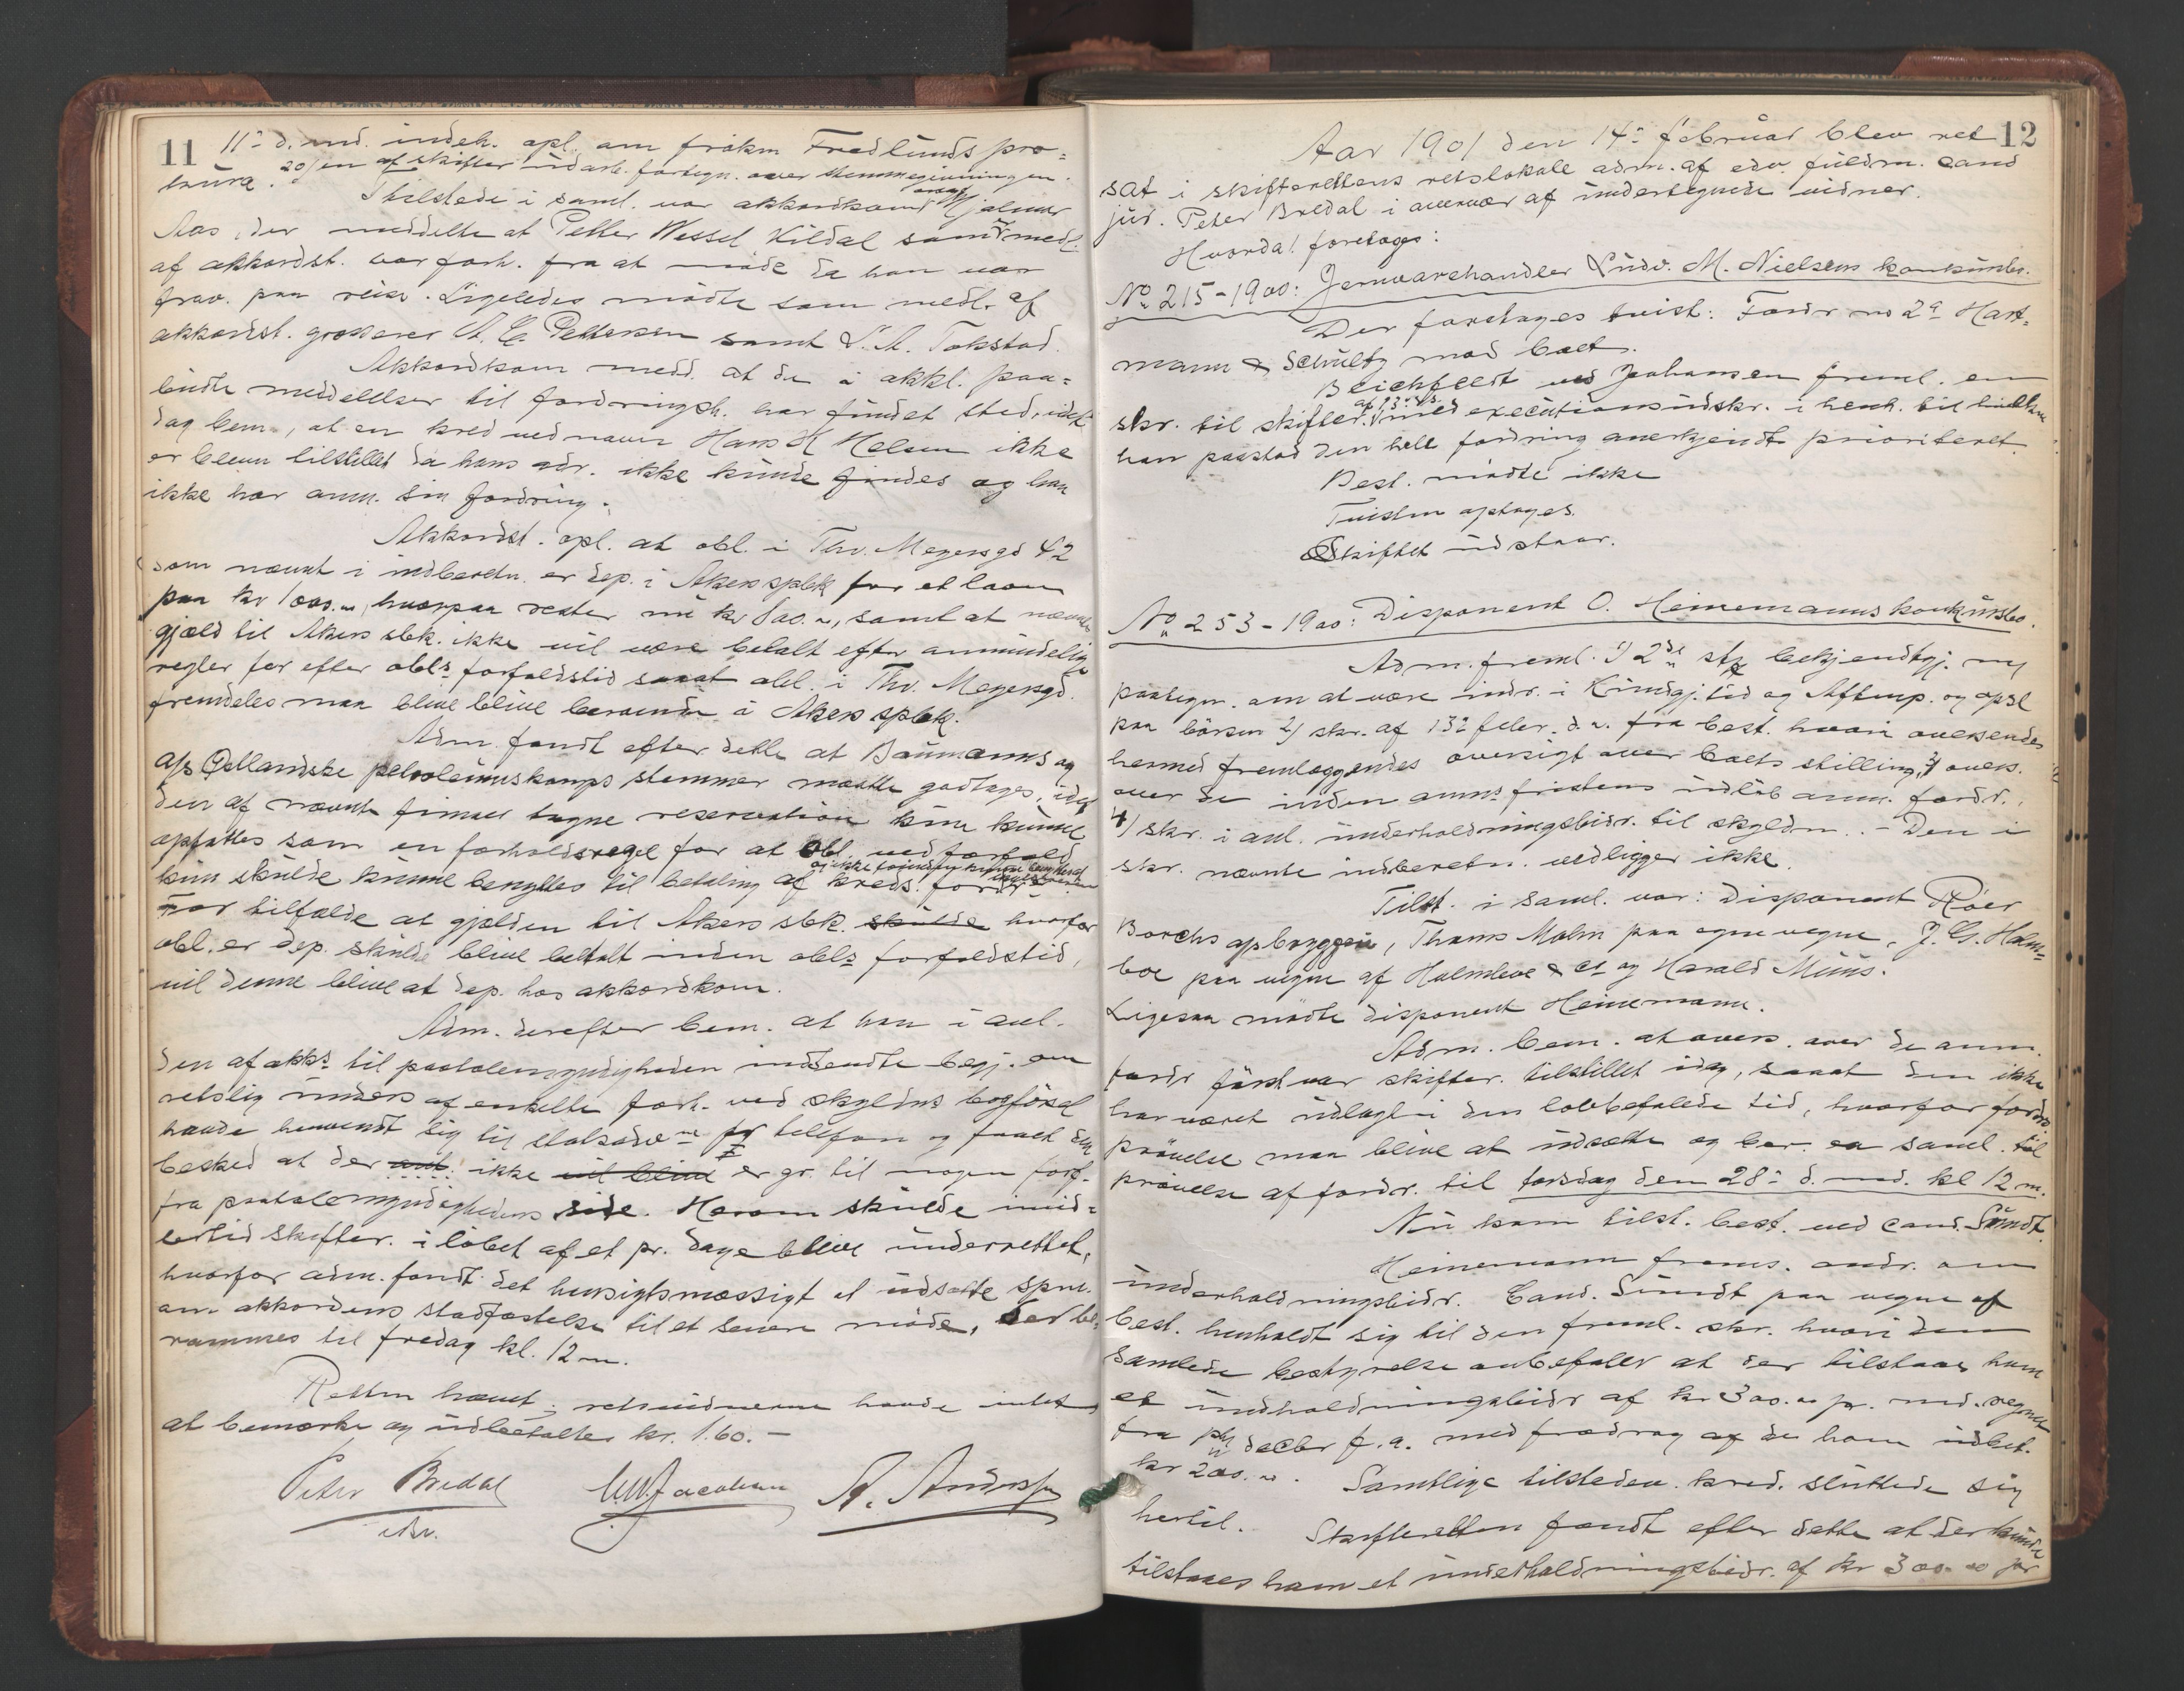 11
11te d. md. indeh. opl. om frøkn Fredlunds pro-
kura. 20/ en af skifter. udarb. fortegn. over stemmegivningen.
Tilstede i saml. var akkordkom. Hjalmar
Aas, der meddelte at Petter Wessel Kildal som medl.
af akkordst. var forh. fra at møde da han var
frav. paa reise. Ligeledes mødte som medl. af
akkordst. grosserer A. C. Pettersen samt L. A. Tokstad.
Akkordkom medd. at de i akkl. paa-
budte meddelelser til fordringsh. har fundet sted, idet
dog bem., at en kred ved navn Hans H Nelsen ikke
er bleven tilstillet da hans adr. ikke kunde findes og han
ikke har anm. sin fordring.
Akkordst. opl. at obl. i Thv. Meyersgd 42
som nævnt i indberetn. er dep. i Akers spbk for et laan
paa kr 1000.00, hvorpaa rester nu kr 800.00, samt at nævnte
gjæld til Akers sbk. ikke vil være betalt efter almindelige
regler før efter obls forfaldstid saaat obl. i Thv. Meyersgd.
fremdeles maa blive blive beroende i Akers spbk.
Adm. fandt efter dette at Baumanns og
A/s Østlandske petroleumskomps stemmer maatte godtages, idet
den af nævnte firmaer tagne reservation kun kunde
opfattes som en forholdsregel for at obl. ved forfald
kun skulde kunne benyttes til betaling af kreds. fordr.
For tilfælde at gjælden til Akers sbk. skulde hvorfor
obl. er dep. skulde blive betalt inden obls forfaldstid,
vil denne blive at dep. hos akkordkom.
Adm. derefter bem. at han i anl.
den af akks til paatalemyndigheden indsendte begj. om
retslig unders af enkelte forh. ved skyldns bogførsel
havde henvendt sig til statsadv. pr telefon og faaet den
besked at der ant. ikke vil blive er gr. til nogen forf.
fra paatalemyndighedens side. Herom skulde imid-
lertid skifter. i løbet af et pr. dage blive underrettet,
hvorfor adm. fandt det hensigtsmæssigt at udsætte spm.
om akkordens stadfæstelse til et senere møde, der be-
rammes til fredag kl. 12 m.
Retten hævet; retsvidnerne havde intet
at bemærke og udbetaltes kr. 1.60.-
Peter Bredal
A. Andersen
12
Aar 1901 den 14de februar blev ret
sat i skifterettens retslokale adm. af edv. fuldm. cand
jur. Peter Bredal i overvær af undertegnede vidner.
Hvorda! foretoges:
No 215-1900: Jernvarehandler Ludv. M. Nielsens konkursbo.
Der foretages tvist: Fordr no 2a Hart-
mann & Schultz mod boet.
Bleichfeldt ved Johansen freml. en
skr. til skifter. af 13 ds. med executionsudskr. i henh. til hvilken
han paastod den hele fordring anerkjendt prioriteret.
Best. mødte ikke
Tvisten optoges.
Skiftet udstaar.
No 253-1900: Disponent O. Heinemanns konkursbo.
Adm. freml. 1) 2de stk bekjendtgj. m
paategn. om at være indr. i Kundgj.tid og Aftenp. og opsl
paa børsen 2) skr. af 13de febr. d. a. fra best. hvori oversendes
hermed fremlæggendes oversigt over boets stilling, 3) overs.
over de inden anms fristens udløb anm. fordr.,
4) skr. i anl. underholdningsbidr. til skyldn. - Den i
skr. nævnte indberetn. vedligger ikke.
Tilst. i saml. var: disponent Røer
Borchs opbryggeri, Thoms Malm paa egne vegne, J. G. Holm-
boe paa vegne af Holmboe & Co og Harald Muus.
Ligesaa mødte disponent Heinemann.
Adm. bem. at overs. over de anm.
fordr først var skifter. tilstillet idag, saaat den ikke
har været udlagt i den lovbefalede tid, hvorfor fordrs
prøvelse maa blive at udsætte og ber. en saml. til
prøvelse af fordr. til torsdag den 28de d. md. kl 12 m.
Nu kom tilst. best. ved cand. Sundt.
Heinemann frems. andr. om
underholdningsbidr. Cand. Sundt paa vegne af
best. henholdt sig til den freml. skr. hvori den
samlede bestyrelse anbefaler at der tilstaaes ham
et underholdningsbidr af kr 300.00 pr. md. regnet
fra decbr f.a. med fradrag af de ham udbet.
kr 200.00. Samtlige tilstedev. kred. sluttede sig
hertil. Skifteretten fandt efter dette at der kunde
tilstaaes ham et underholdningsbidr. af kr 300.00 pr